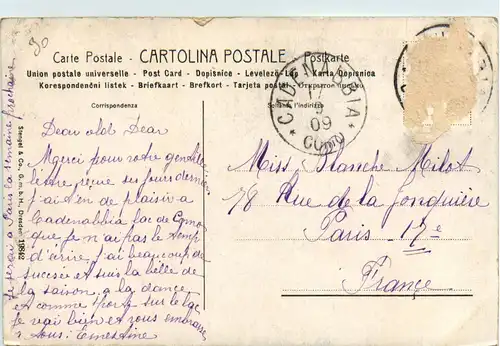 30
Carte Postale - CARTOLINA POSTALE - Postkarte
Union postale universelle - Post Card - Dopisnice - Levelező-Lap - Karta Dopisnica
Korespondenční listek - Briefkaart - Brefkort - Tarjeta postal
Corrispondenza
l'indirizzo
09
Dear old Dear
Merci pour votre gentille
lettre reçue ses jours dernier
j'ai t'en de plaisir a
Cadenabbia lac de Como
que je n'ai pas le temp
d'écrire, j'ai beaucoup de
succées et suis la belle de
la saison, a la dance
et comme sport sur le lac
je vais bien et vous embrasse
tous: Ernestine
Je serai a Paris la semaine prochaine
Stengel & Co., G.m.b.H., Dresden
Miss Blanche Milot
78 Rue de la Jonquière
Paris 17e
France